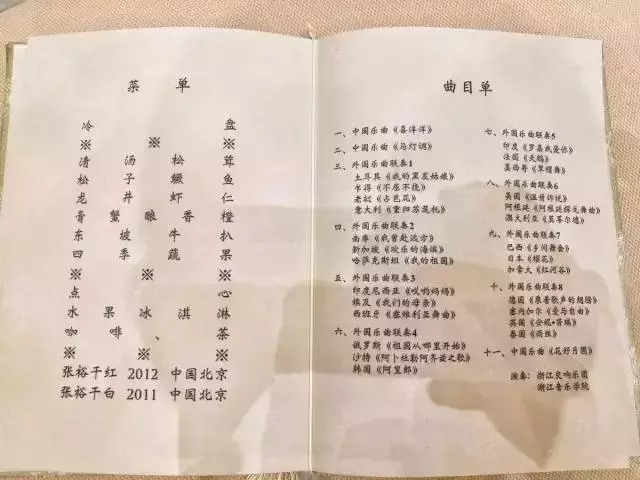 菜 单
冷 盘
※ ※ ※
清 汤 松 茸
松 子 鳜 鱼
龙 井 虾 仁
膏 蟹 酿 香 橙
东 坡 牛 扒
四 季 蔬 果
※ ※ ※
点 心
水 果 冰 淇 淋
咖 啡 、 茶
※ ※ ※
张裕干红 2012 中国北京
张裕干白 2011 中国北京
曲目单
一、中国乐曲《喜洋洋》
二、中国乐曲《马灯调》
三、外国乐曲联奏1
土耳其《我的黑发姑娘》
乍得《不屈不挠》
老挝《占芭花》
意大利《重归苏莲托》
四、外国乐曲联奏2
南非《我曾赴远方》
新加坡《欢乐的海滨》
哈萨克斯坦《我的祖国》
五、外国乐曲联奏3
印度尼西亚《哎哟妈妈》
埃及《我们的母亲》
西班牙《塞维利亚舞曲》
六、外国乐曲联奏4
俄罗斯《祖国从哪里开始》
沙特《阿卜杜勒阿齐兹之歌》
韩国《阿里郎》
七、外国乐曲联奏5
印度《罗摩我爱你》
法国《天鹅》
墨西哥《草帽舞》
八、外国乐曲联奏6
美国《温情诉说》
阿根廷《阿根廷探戈舞曲》
澳大利亚《莫蒂尔德》
九、外国乐曲联奏7
巴西《乡间舞会》
日本《樱花》
加拿大《红河谷》
十、外国乐曲联奏8
德国《乘着歌声的翅膀》
塞内加尔《爱与自由》
英国《安妮•劳瑞》
泰国《雨丝》
十一、中国乐曲《花好月圆》
演奏：浙江交响乐团
浙江音乐学院